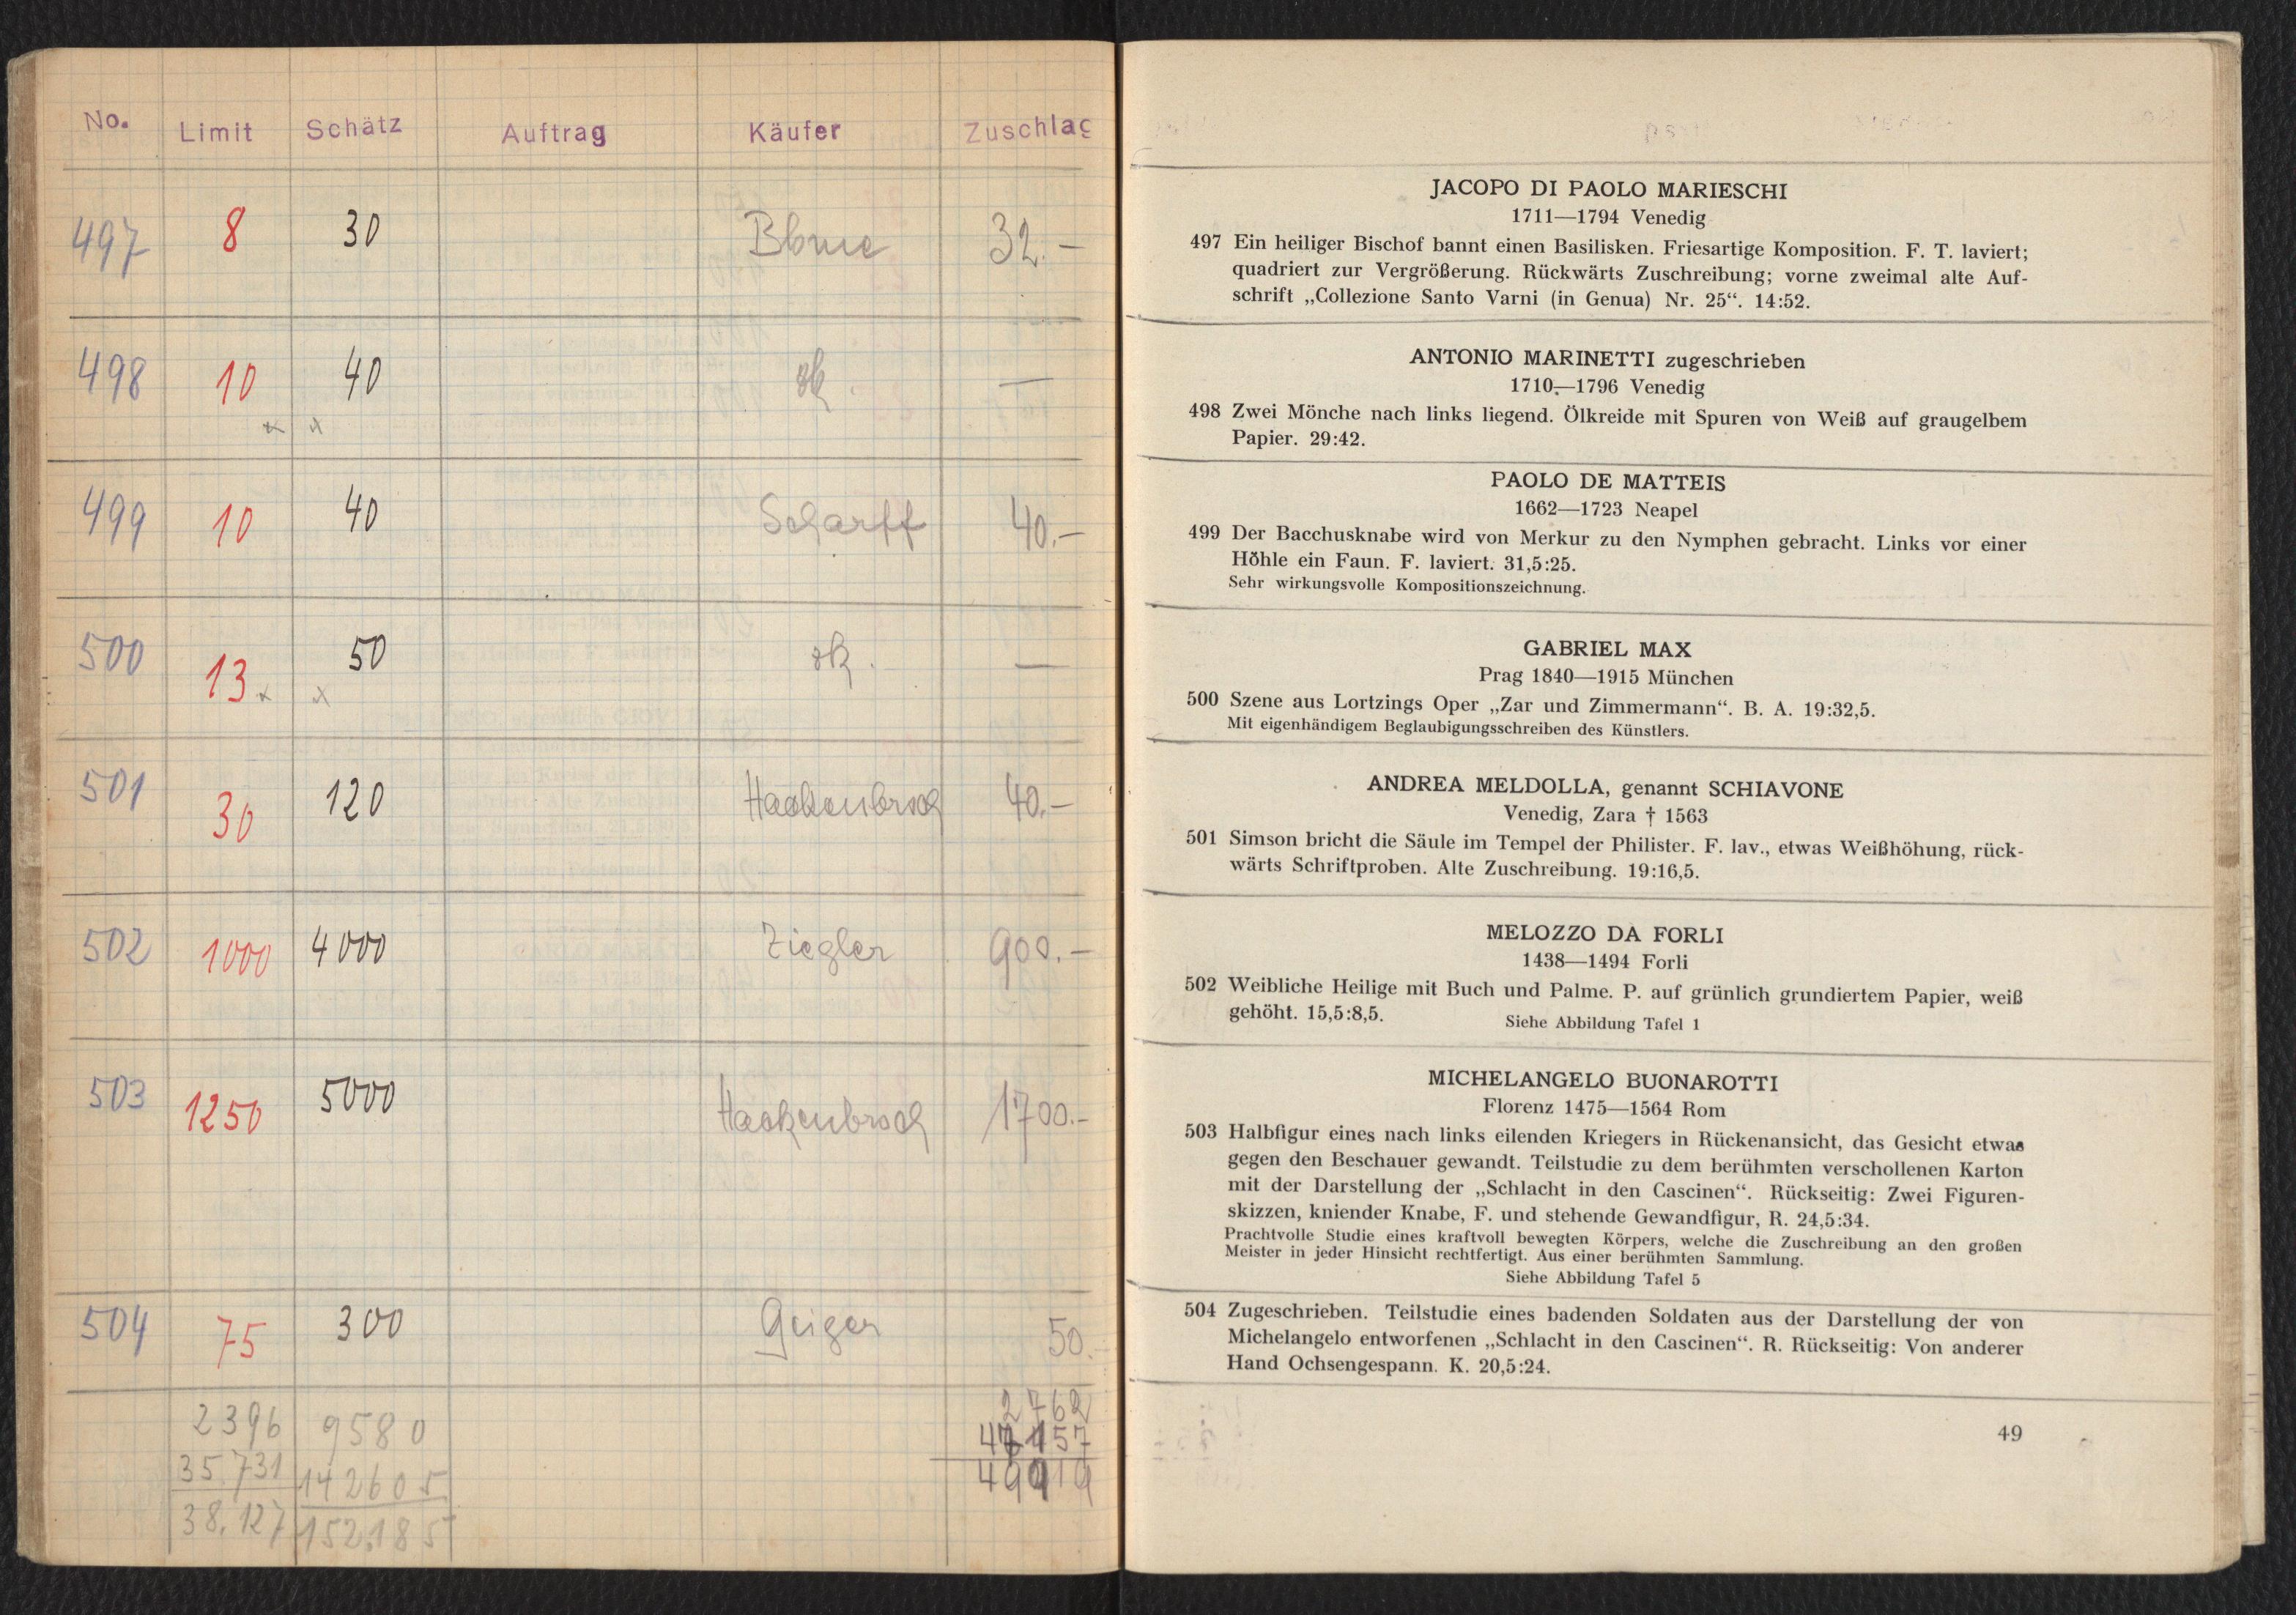 No. Limit Schätz Auftrag Käufer Zuschlag
497 8 30 Blume 32.—
498 10 40 —
x x
499 10 40 Scharff 40.—
500 13 50 —
x x
501 30 120 Hackenbroch 40.—
502 1000 4000 Ziegler 900.—
503 1250 5000 Hackenbroch 1700.-
504 75 300 Geiger 50.
2396 9580 2762
35.731 142605 47157
38.127 152.185 49919
JACOPO DI PAOLO MARIESCHI
1711—1794 Venedig
497 Ein heiliger Bischof bannt einen Basilisken. Friesartige Komposition. F. T. laviert;
quadriert zur Vergrößerung. Rückwärts Zuschreibung; vorne zweimal alte Auf-
schrift „Collezione Santo Varni (in Genua) Nr. 25“. 14:52.
ANTONIO MARINETTI zugeschrieben
1710—1796 Venedig
498 Zwei Mönche nach links liegend. Ölkreide mit Spuren von Weiß auf graugelbem
Papier. 29:42.
PAOLO DE MATTEIS
1662—1723 Neapel
499 Der Bacchusknabe wird von Merkur zu den Nymphen gebracht. Links vor einer
Höhle ein Faun. F. laviert. 31,5:25.
Sehr wirkungsvolle Kompositionszeichnung.
GABRIEL MAX
Prag 1840—1915 München
500 Szene aus Lortzings Oper „Zar und Zimmermann“. B. A. 19:32,5.
Mit eigenhändigem Beglaubigungsschreiben des Künstlers.
ANDREA MELDOLLA, genannt SCHIAVONE
Venedig, Zara † 1563
501 Simson bricht die Säule im Tempel der Philister. F. lav., etwas Weißhöhung, rück-
wärts Schriftproben. Alte Zuschreibung. 19:16,5.
MELOZZO DA FORLI
1438—1494 Forli
502 Weibliche Heilige mit Buch und Palme. P. auf grünlich grundiertem Papier, weiß
gehöht. 15,5:8,5.
Siehe Abbildung Tafel 1
MICHELANGELO BUONAROTTI
Florenz 1475—1564 Rom
503 Halbfigur eines nach links eilenden Kriegers in Rückenansicht, das Gesicht etwas
gegen den Beschauer gewandt. Teilstudie zu dem berühmten verschollenen Karton
mit der Darstellung der „Schlacht in den Cascinen“. Rückseitig: Zwei Figuren-
skizzen, kniender Knabe, F. und stehende Gewandfigur, R. 24,5:34.
Prachtvolle Studie eines kraftvoll bewegten Körpers, welche die Zuschreibung an den großen
Meister in jeder Hinsicht rechtfertigt. Aus einer berühmten Sammlung.
Siehe Abbildung Tafel 5
504 Zugeschrieben. Teilstudie eines badenden Soldaten aus der Darstellung der von
Michelangelo entworfenen „Schlacht in den Cascinen“. R. Rückseitig: Von anderer
Hand Ochsengespann. K. 20,5:24.
49